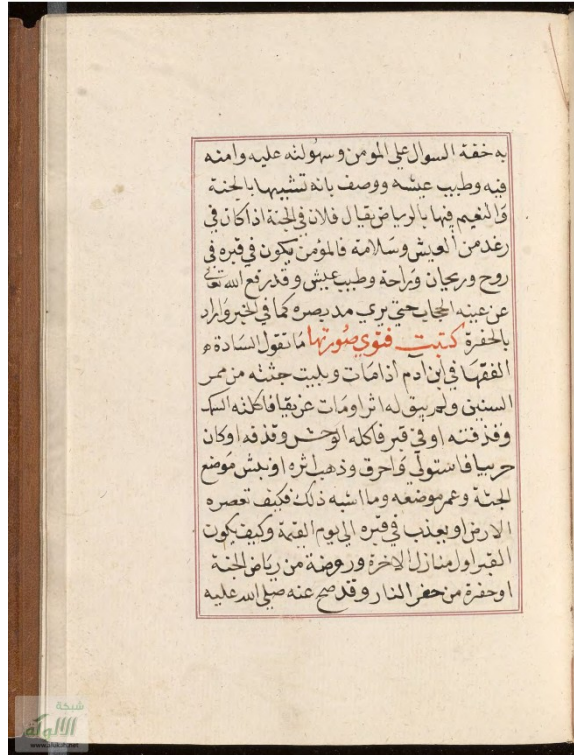 به خفة السوال على المومن وسهولته عليه وامنه
فيه وطيب عيشه ووصف بانه تشبيها بالجنة
والنعيم فيها بالرياض يقال فلان في الجنة اذا كان في
رغد من العيش وسلامة فالمؤمن يكون في قبره في
روح وريحان وراحة وطيب عيش وقد رفع الله تعالى
عن عينه الحجاب حتي يري مد بصره كما في الخبر واراد
بالحفرة كتبت فتوي صورتها ما تقول السادة
الفقها في ابن ادم اذا مات وبليت جثته من ممر
السنين ولم يبق له اثر او مات غريقا فاكلته السمك
وقذفته او في قبر فاكله الوحش وقذفه او كان
حربيا فاستولي واحرق وذهب اثره او نبش موضع
الجثة وعمر موضعه وما اشبه ذلك فكيف تعصره
الارض او يعذب في قبره الي يوم القيمة وكيف يكون
القبر اول منازل الاخرة وروضة من رياض الجنة
او حفرة من حفر النار وقد صح عنه صلي الله عليه
شبكة
الألوكة
www.alukah.net